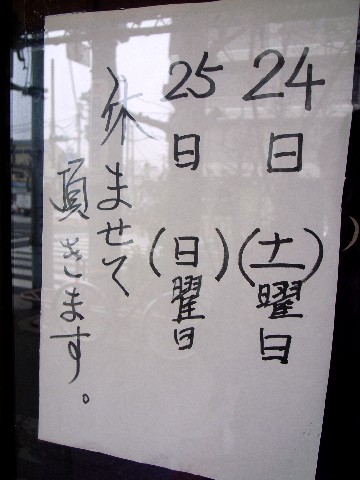 24日(土曜日
25日(日)曜日
休ませて
頂きます。